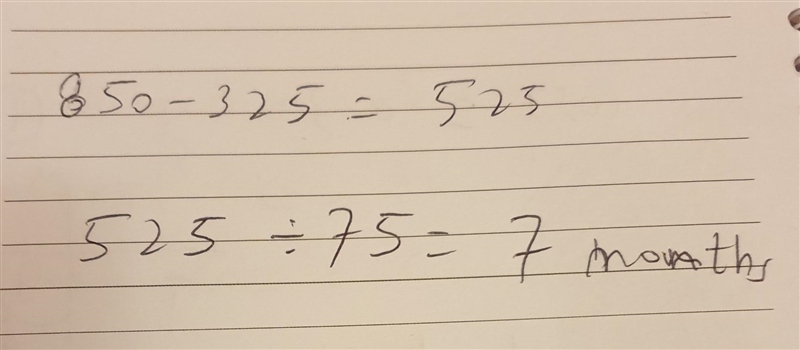 850-325 = 525
525 ÷ 75 = 7 months